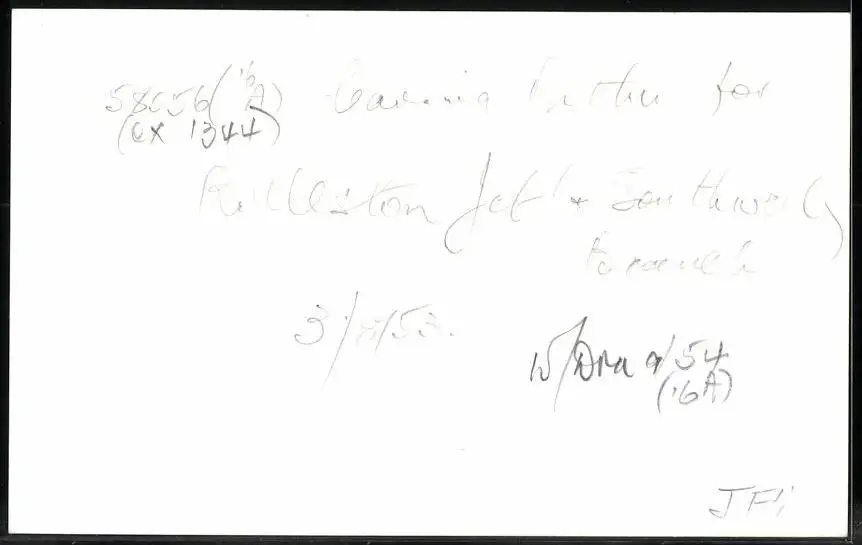 58056 (16A) leaving for
(ex 1344)
Rolleston Jct & Southwell
branch
3/ /53.
W/Drn 9/54
(16A)